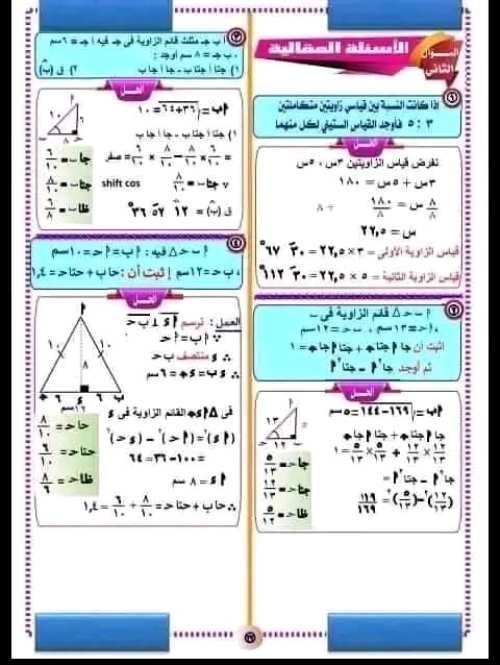 السؤال الثاني
الأسئلة المقالية
١ إذا كانت النسبة بين قياسي زاويتين متكاملتين
٣ : ٥ فأوجد القياس الستيني لكل منهما
الحل
نفرض قياس الزاويتين ٣س ، ٥س
٣س + ٥س = ١٨٠
٨ س = ١٨٠/٨ ÷ ٨
س = ٢٢,٥
قياس الزاوية الأولى = ٣ × ٢٢,٥ = ٣٠ ٦٧°
قياس الزاوية الثانية = ٥ × ٢٢,٥ = ٣٠ ١١٢°
٢ △ قائم الزاوية في ب
، ا حـ = ١٣سم ، ب حـ = ١٢سم
اثبت أن جا ا جتا حـ + جتا ا جا حـ = ١
ثم أوجد جا²ا - جتا²ا
الحل
اب = √١٦٩-١٤٤ = ٥سم
جا ا جتا حـ + جتا ا جا حـ
١٢/١٣ × ١٢/١٣ + ٥/١٣ × ٥/١٣ = ١
جا²ا - جتا²ا =
(١٢/١٣)² - (٥/١٣)² = ١١٩/١٦٩
١٣
١٢
جا حـ = ٥/١٣
جتا حـ = ١٢/١٣
ظا حـ = ٥/١٢
٣ ا ب جـ مثلث قائم الزاوية في جـ فيه ا جـ = ٦سم
، ب جـ = ٨ سم أوجد :
١) جتا ا جتا ب - جا ا جا ب ٢) ق (ب)
الحل
اب = √٣٦+٦٤ = ١٠
١) جتا ا جتا ب - جا ا جا ب
= ٦/١٠ × ٨/١٠ - ٨/١٠ × ٦/١٠ = صفر
∵ جتا ب = ٨/١٠ shift cos
ق (ب) = ١٢ ٥٢ ٣٦°
١٠
٦
٨
جا ب = ٦/١٠
جتا ب = ٨/١٠
ظا ب = ٦/٨
٤ ا ب حـ △ فيه : ا ب = ا حـ = ١٠سم
، ب حـ = ١٢سم إثبت أن : حا ب + حتا حـ = ١,٤
الحل
العمل : نرسم ا ء ⊥ ب حـ
∵ ا ب = ا حـ
∴ ء منتصف ب حـ
∴ ء ب = ء حـ = ٦سم
في △ ا ء حـ القائم الزاوية في ء
(ا ء)² = (ا حـ)² - (ء حـ)²
= ١٠٠ - ٣٦ = ٦٤
ا ء = ٨ سم
∴ حا ب + حتا حـ = ٨/١٠ + ٦/١٠ = ١,٤
١٠
١٠
٨
٦
٦
١٢سم
حا حـ = ٨/١٠
حتا حـ = ٦/١٠
ظا حـ = ٨/٦